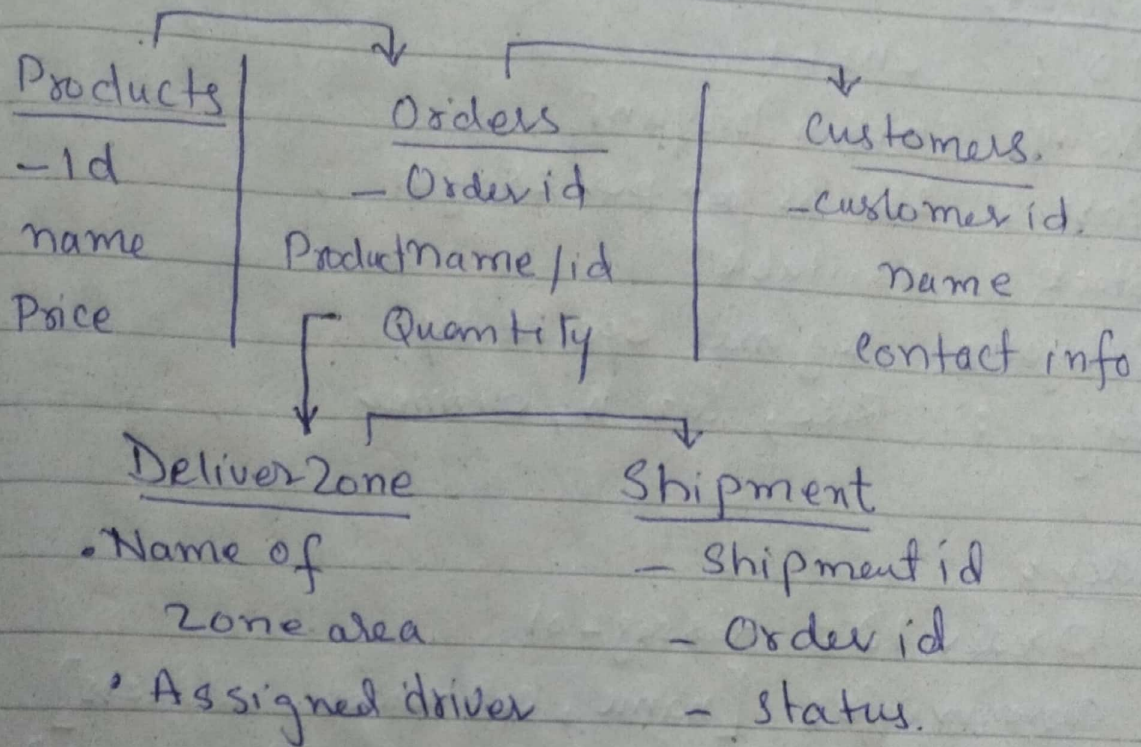 Products
- Id
name
Price
Orders
- Order id
Productname/id
Quantity
Customers.
- customer id.
name
contact info
Deliver Zone
• Name of
zone area
• Assigned driver
Shipment
- Shipment id
- Order id
- Status.